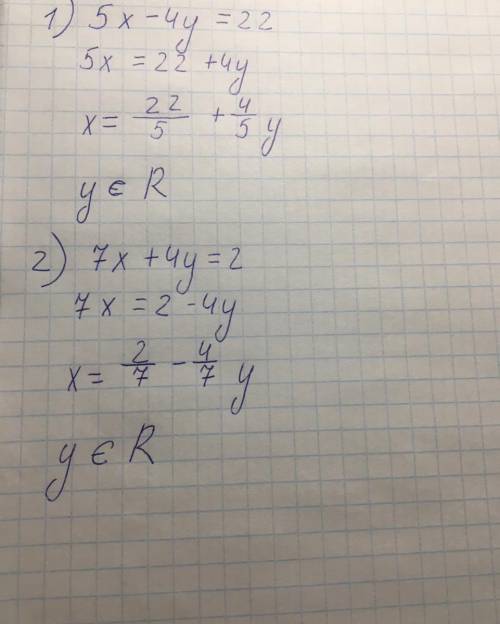 1) 5x - 4y = 22
5x = 22 + 4y
x = 22/5 + 4/5 y
y ∈ R
2) 7x + 4y = 2
7x = 2 - 4y
x = 2/7 - 4/7 y
y ∈ R